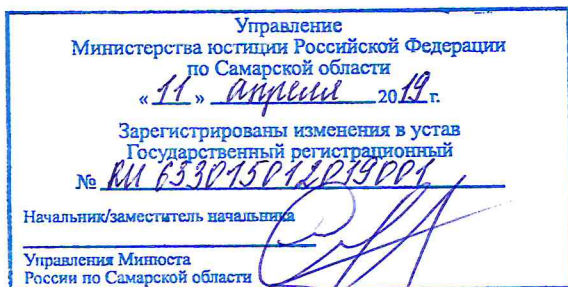 Управление
Министерства юстиции Российской Федерации
по Самарской области
« 11 » апреля 2019 г.
Зарегистрированы изменения в устав
Государственный регистрационный
№ RU 633015012019001
Начальник/заместитель начальника
Управления Минюста
России по Самарской области